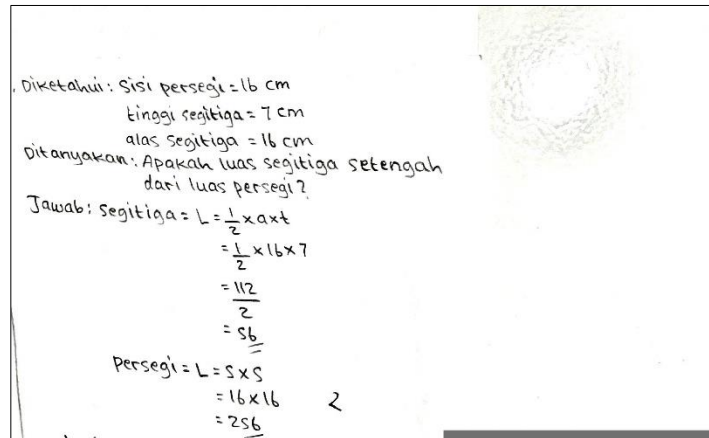 Diketahui: Sisi persegi = 16 cm
tinggi segitiga = 7 cm
alas segitiga = 16 cm
Ditanyakan: Apakah luas segitiga setengah
dari luas persegi?
Jawab: segitiga = L = 1/2 x a x t
= 1/2 x 16 x 7
= 112/2
= 56
Persegi = L = S x S
= 16 x 16 2
= 256